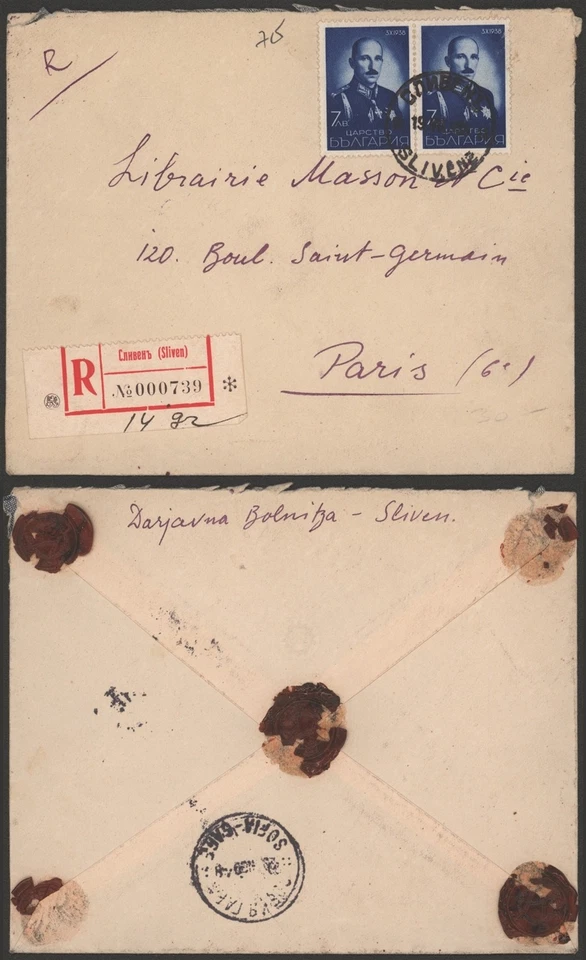 R
75
3X1938
3X1938
7ЛВ.
7
ЦАРСТВО
ЦАРСТВО
БЪЛГАРИЯ
БЪЛГАРИЯ
СЛИВЕНЪ
SLIVENE
Librairie Masson et Cie
120. Boul. Saint-Germain
Paris (6e)
Сливенъ (Sliven)
R
№000739
14 gr
Darjavna Bolnitza - Sliven.
SOFIA-GARE